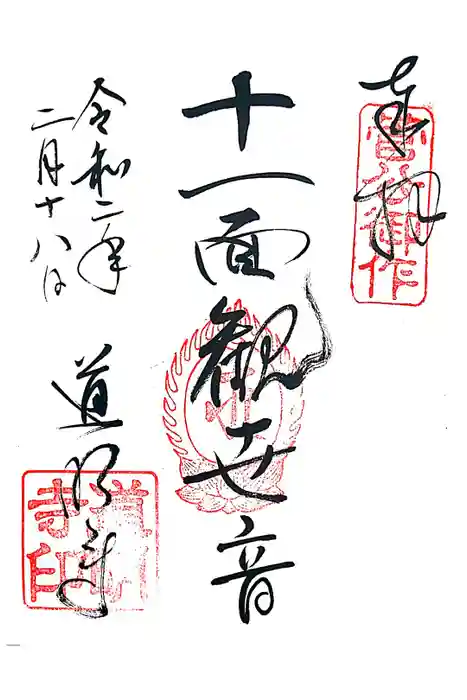 奉拝
菅公御作
十一面観世音
令和二年
二月十八日
道明寺
道明
寺印